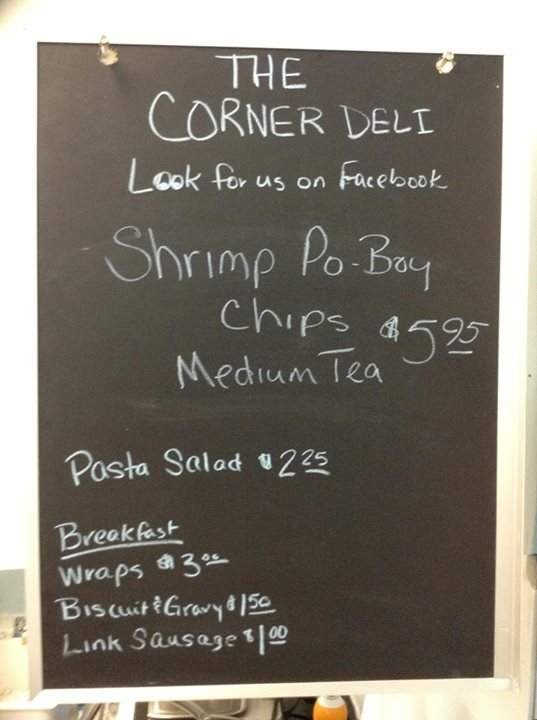 THE
CORNER DELI
Look for us on Facebook
Shrimp Po-Boy
Chips $5 95
Medium Tea
Pasta Salad $2 25
Breakfast
Wraps $3 00
Biscuit & Gravy $1 50
Link Sausage $1 00